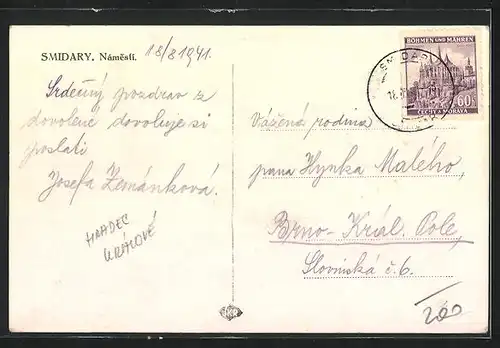 SMIDARY. Náměstí.
18/8 1941.
Srdečný pozdrav z
dovolené dovoluje si
poslati
Josefa Zemánková.
HRADEC
KRÁLOVÉ
BÖHMEN UND MÄHREN
60
ČECHY A MORAVA
SMIDARY
Vážená rodina
pana Hynka Malého,
Brno-Král. Pole,
Slovinská č. 6.
200